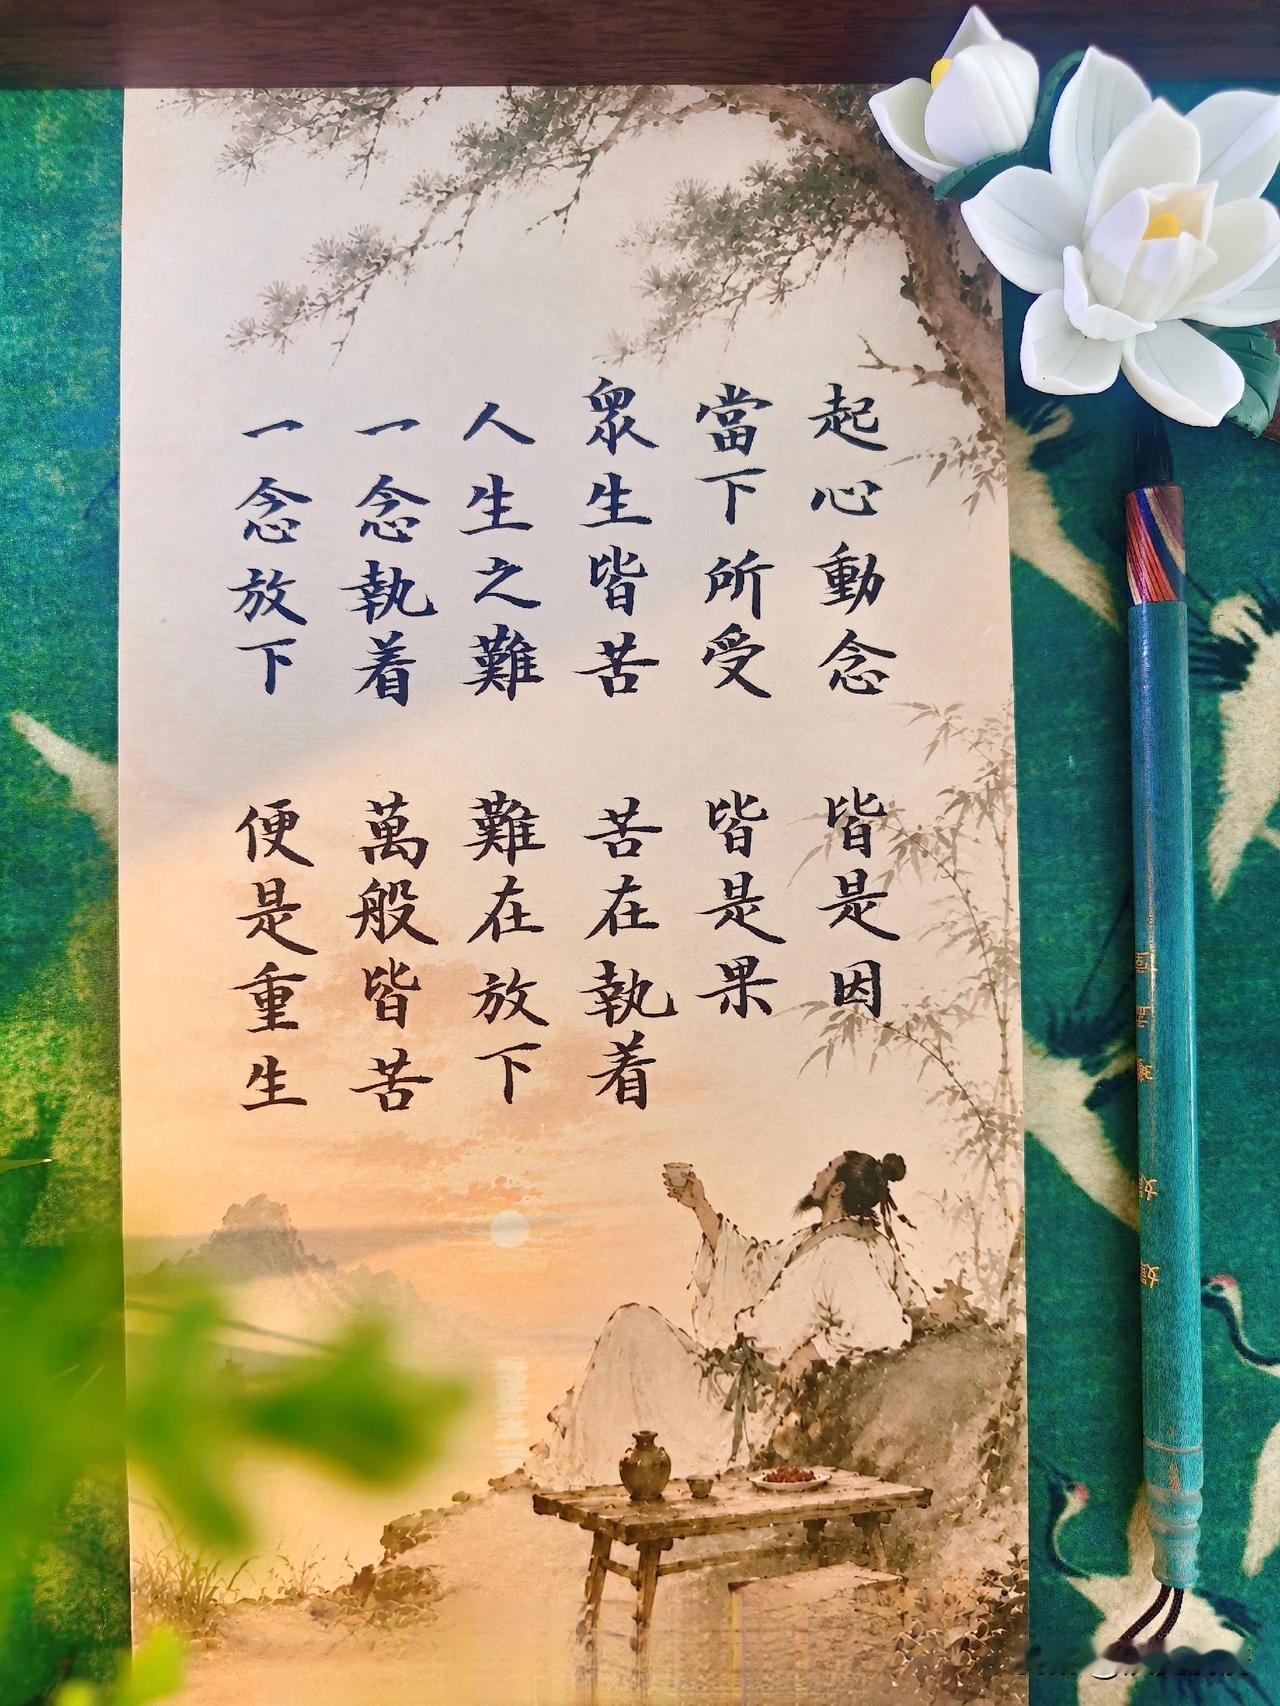 起心動念 皆是因
當下所受 皆是果
眾生皆苦 苦在執着
人生之難 難在放下
一念執着 萬般皆苦
一念放下 便是重生